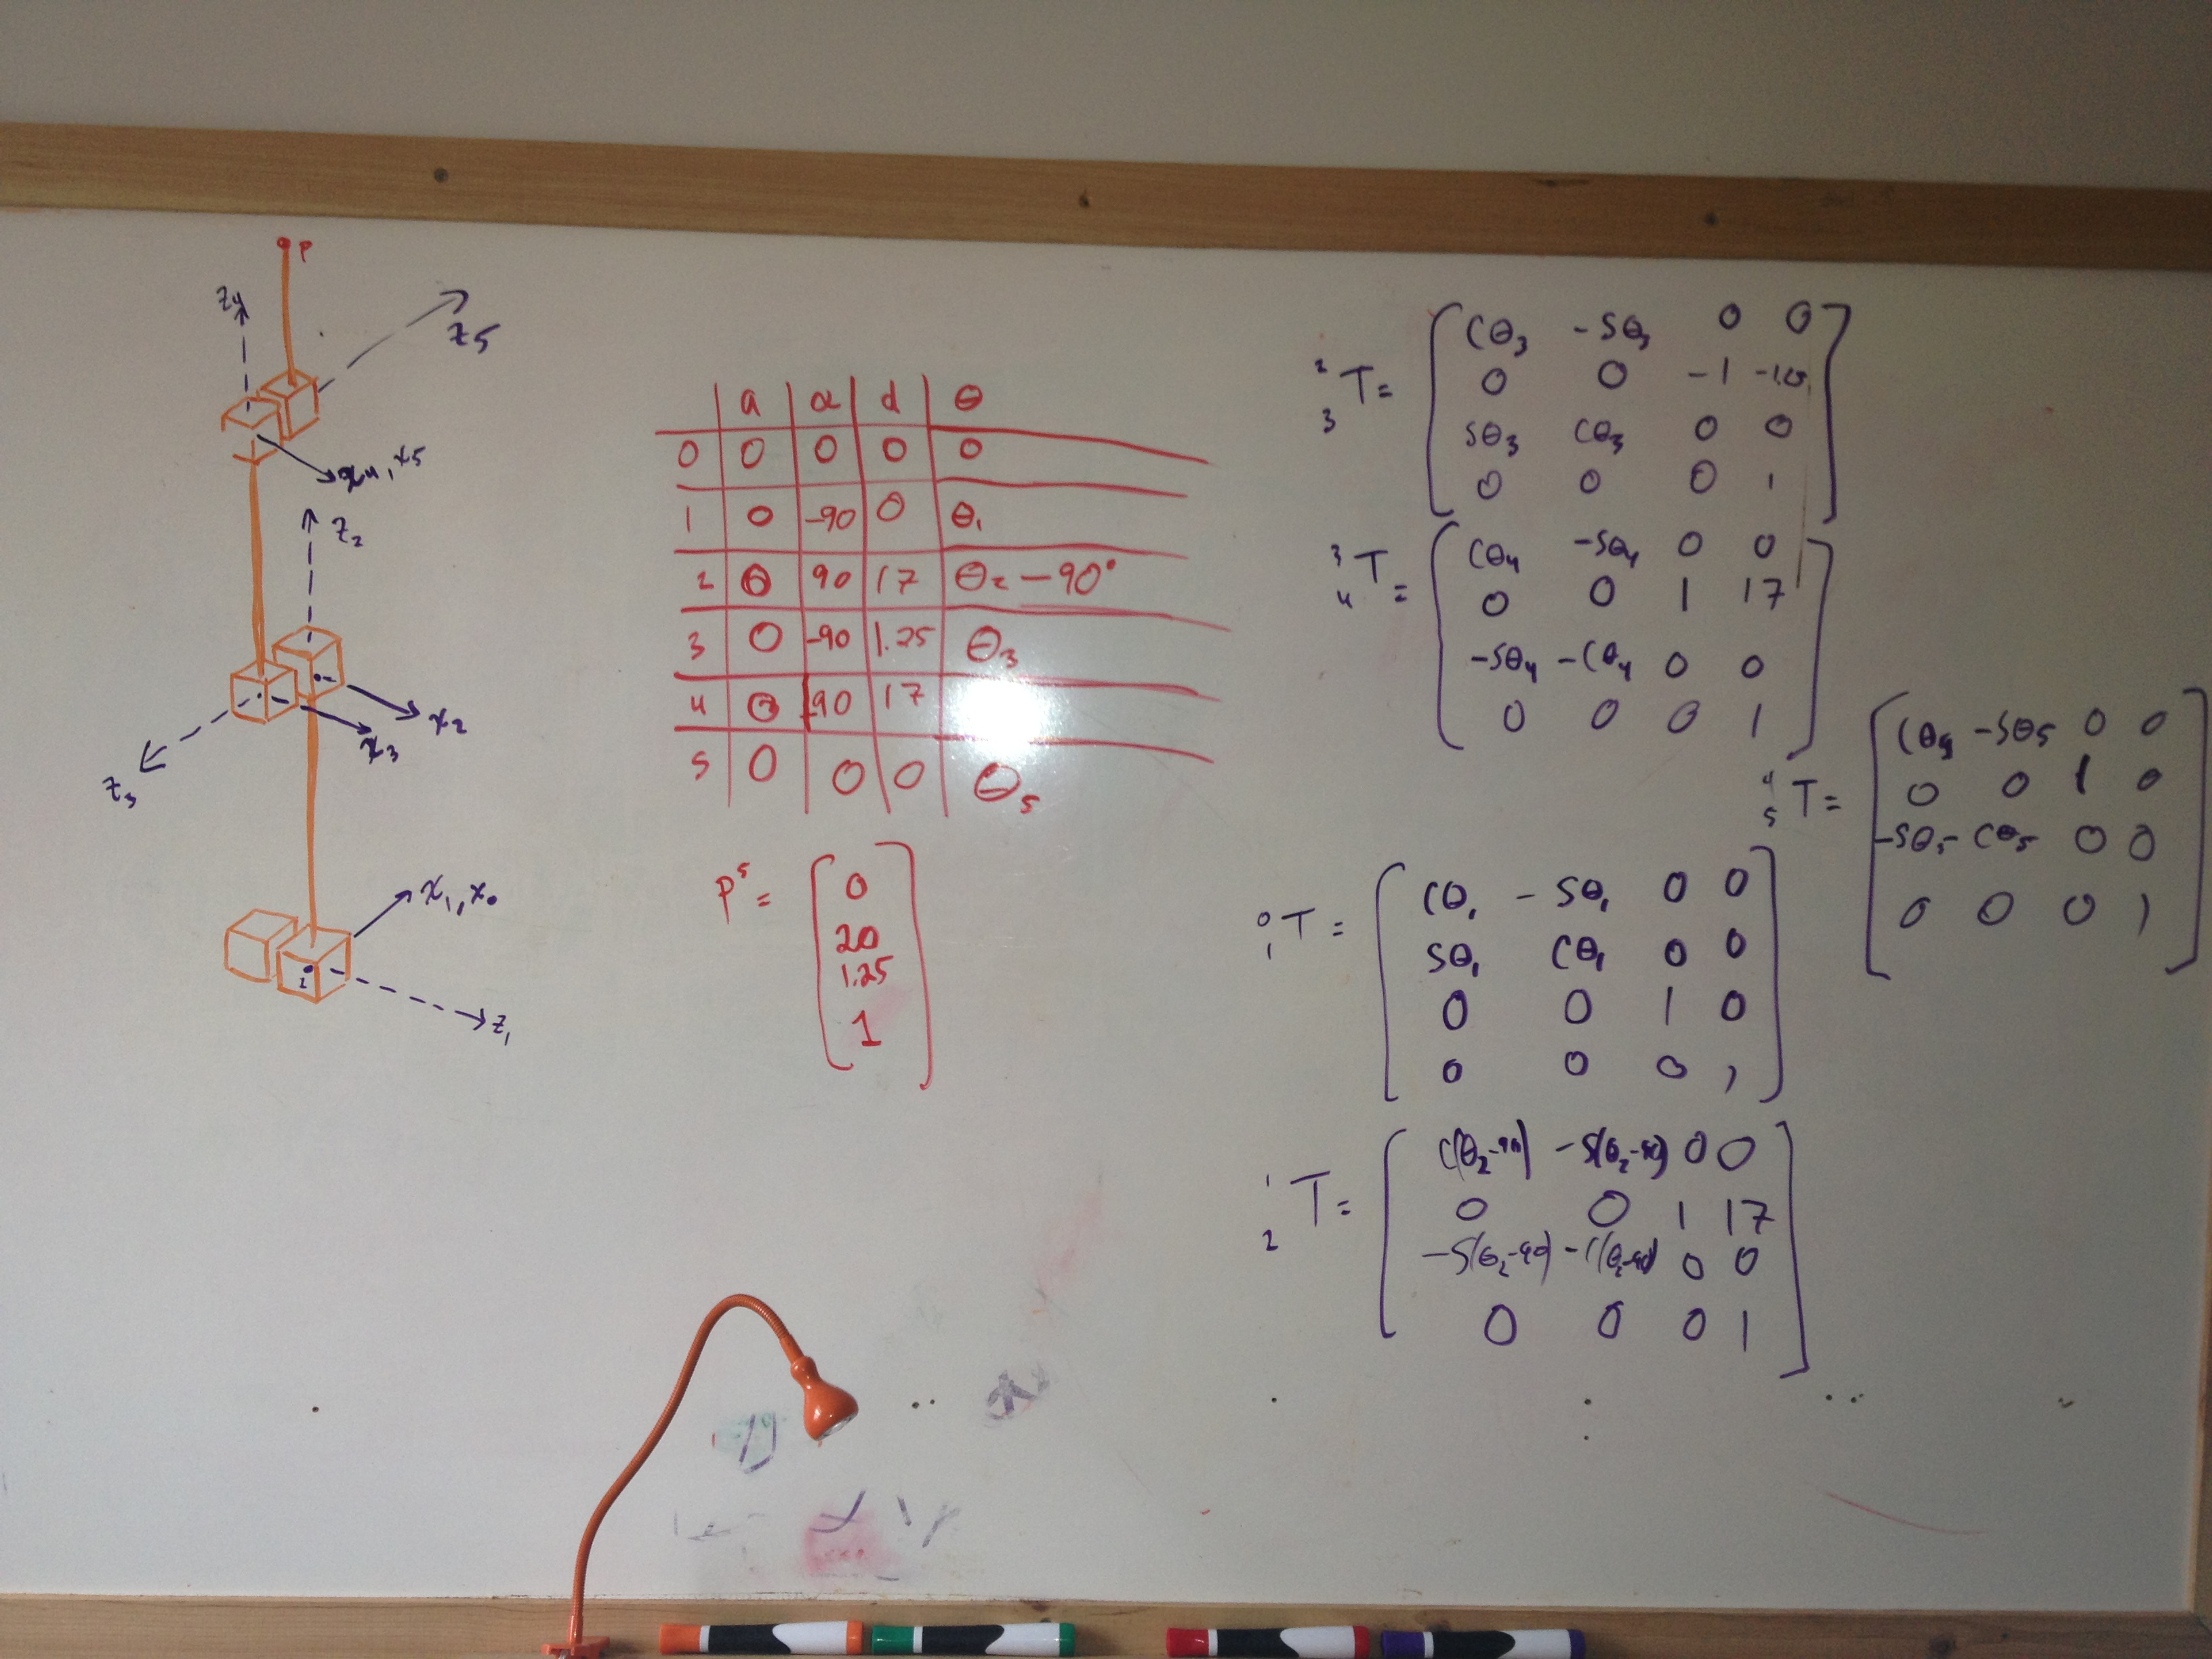 P
z4
z5
x4, x5
z2
x2
x3
z3
x1, x0
z
z1
a α d θ
0 0 0 0 0
1 0 -90 0 θ1
2 0 90 17 θ2 -90°
3 0 -90 1.25 θ3
4 0 90 17
5 0 0 0 θ5
P⁵ =
0
20
1.25
1
2 3 T =
Cθ3 -Sθ3 0 0
0 0 -1
Sθ3 Cθ3 0 0
0 0 0 1
3 4 T =
Cθ4 -Sθ4 0 0
0 0 1 17
-Sθ4 -Cθ4 0 0
0 0 0 1
4 5 T =
Cθ5 -Sθ5 0 0
0 0 1 0
-Sθ5 -Cθ5 0 0
0 0 0 1
0 1 T =
Cθ1 -Sθ1 0 0
Sθ1 Cθ1 0 0
0 0 1 0
0 0 0 1
1 2 T =
C(θ2-90) -S(θ2-90) 0 0
0 0 1 17
-S(θ2-90) -C(θ2-90) 0 0
0 0 0 1